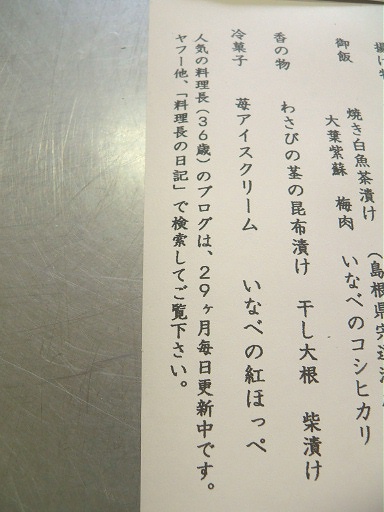 揚げ物
(島根県宍道
御飯 焼き白魚茶漬け いなべのコシヒカリ
大葉紫蘇 梅肉
香の物 わさびの茎の昆布漬け 干し大根 柴漬け
冷菓子 苺アイスクリーム いなべの紅ほっぺ
人気の料理長(36歳)のブログは、29ヶ月毎日更新中です。
ヤフー他、「料理長の日記」で検索してご覧下さい。